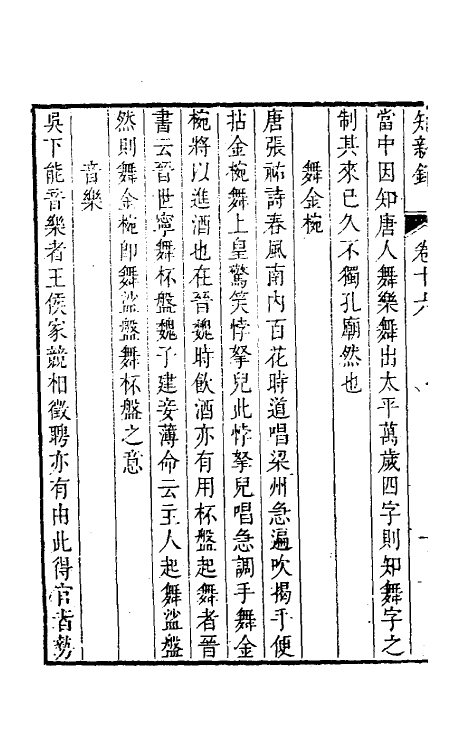 知新錄 卷十六
當中因知唐人舞樂舞出太平萬歲四字則知舞字之
制其來已久不獨孔廟然也
舞金椀
唐張祜詩春風南內百花時道唱梁州急遍吹揭手便
拈金椀舞上皇驚笑悖拏兒此悖拏兒唱急調手舞金
椀將以進酒也在晉魏時飲酒亦有用杯盤起舞者晉
書云晉世寧舞杯盤魏子建妾薄命云主人起舞盤
然則舞金椀即舞盤舞杯盤之意
音樂
吳下能音樂者王侯家競相徵聘亦有由此得官者勢